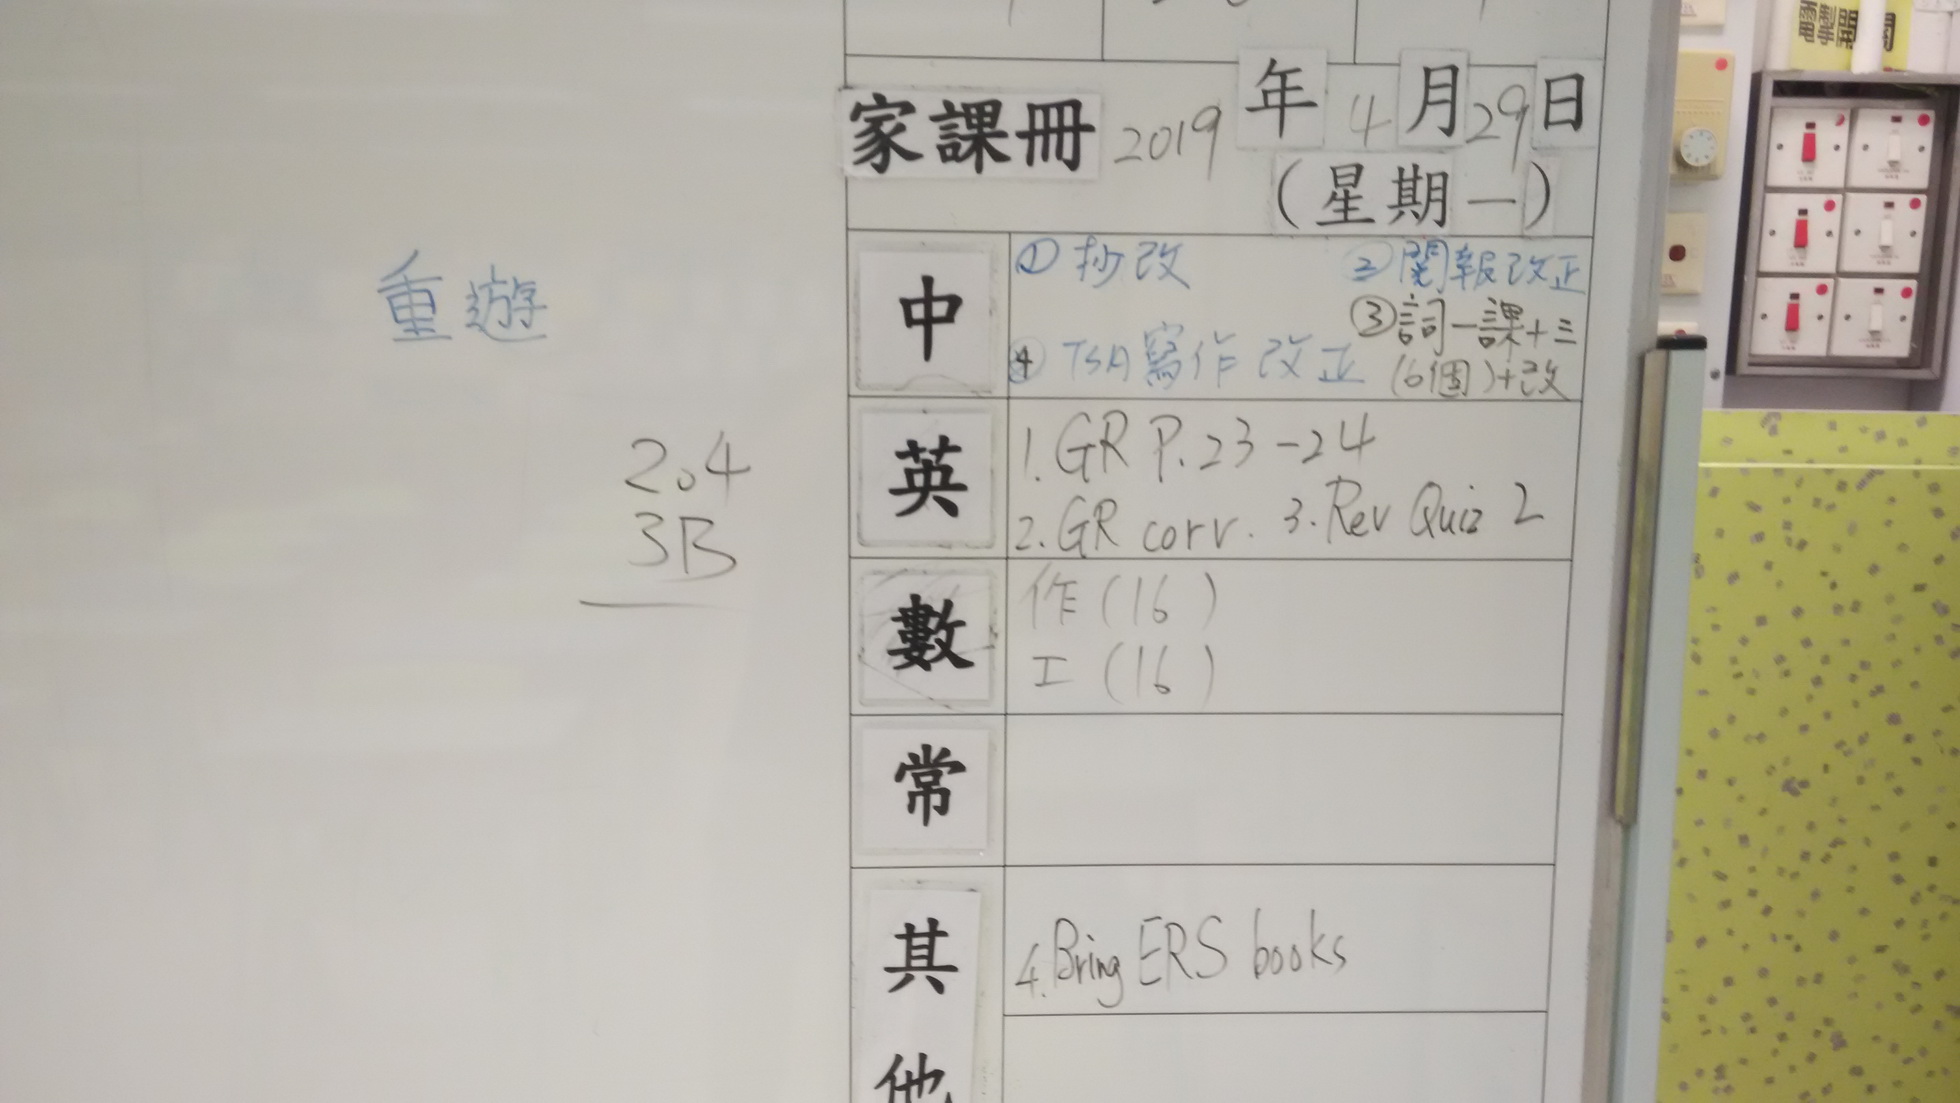 家課冊 2019 年 4 月 29 日
(星期一)
重遊
2.4
3B
中
① 抄改 ② 閱報改正
③ 詞一課+三
(6個)+改
④ TSA寫作改正
英
1. GR P. 23-24
2. GR corr. 3. Rev Quiz 2
數
作(16)
工(16)
常
其他
4. Bring ERS books